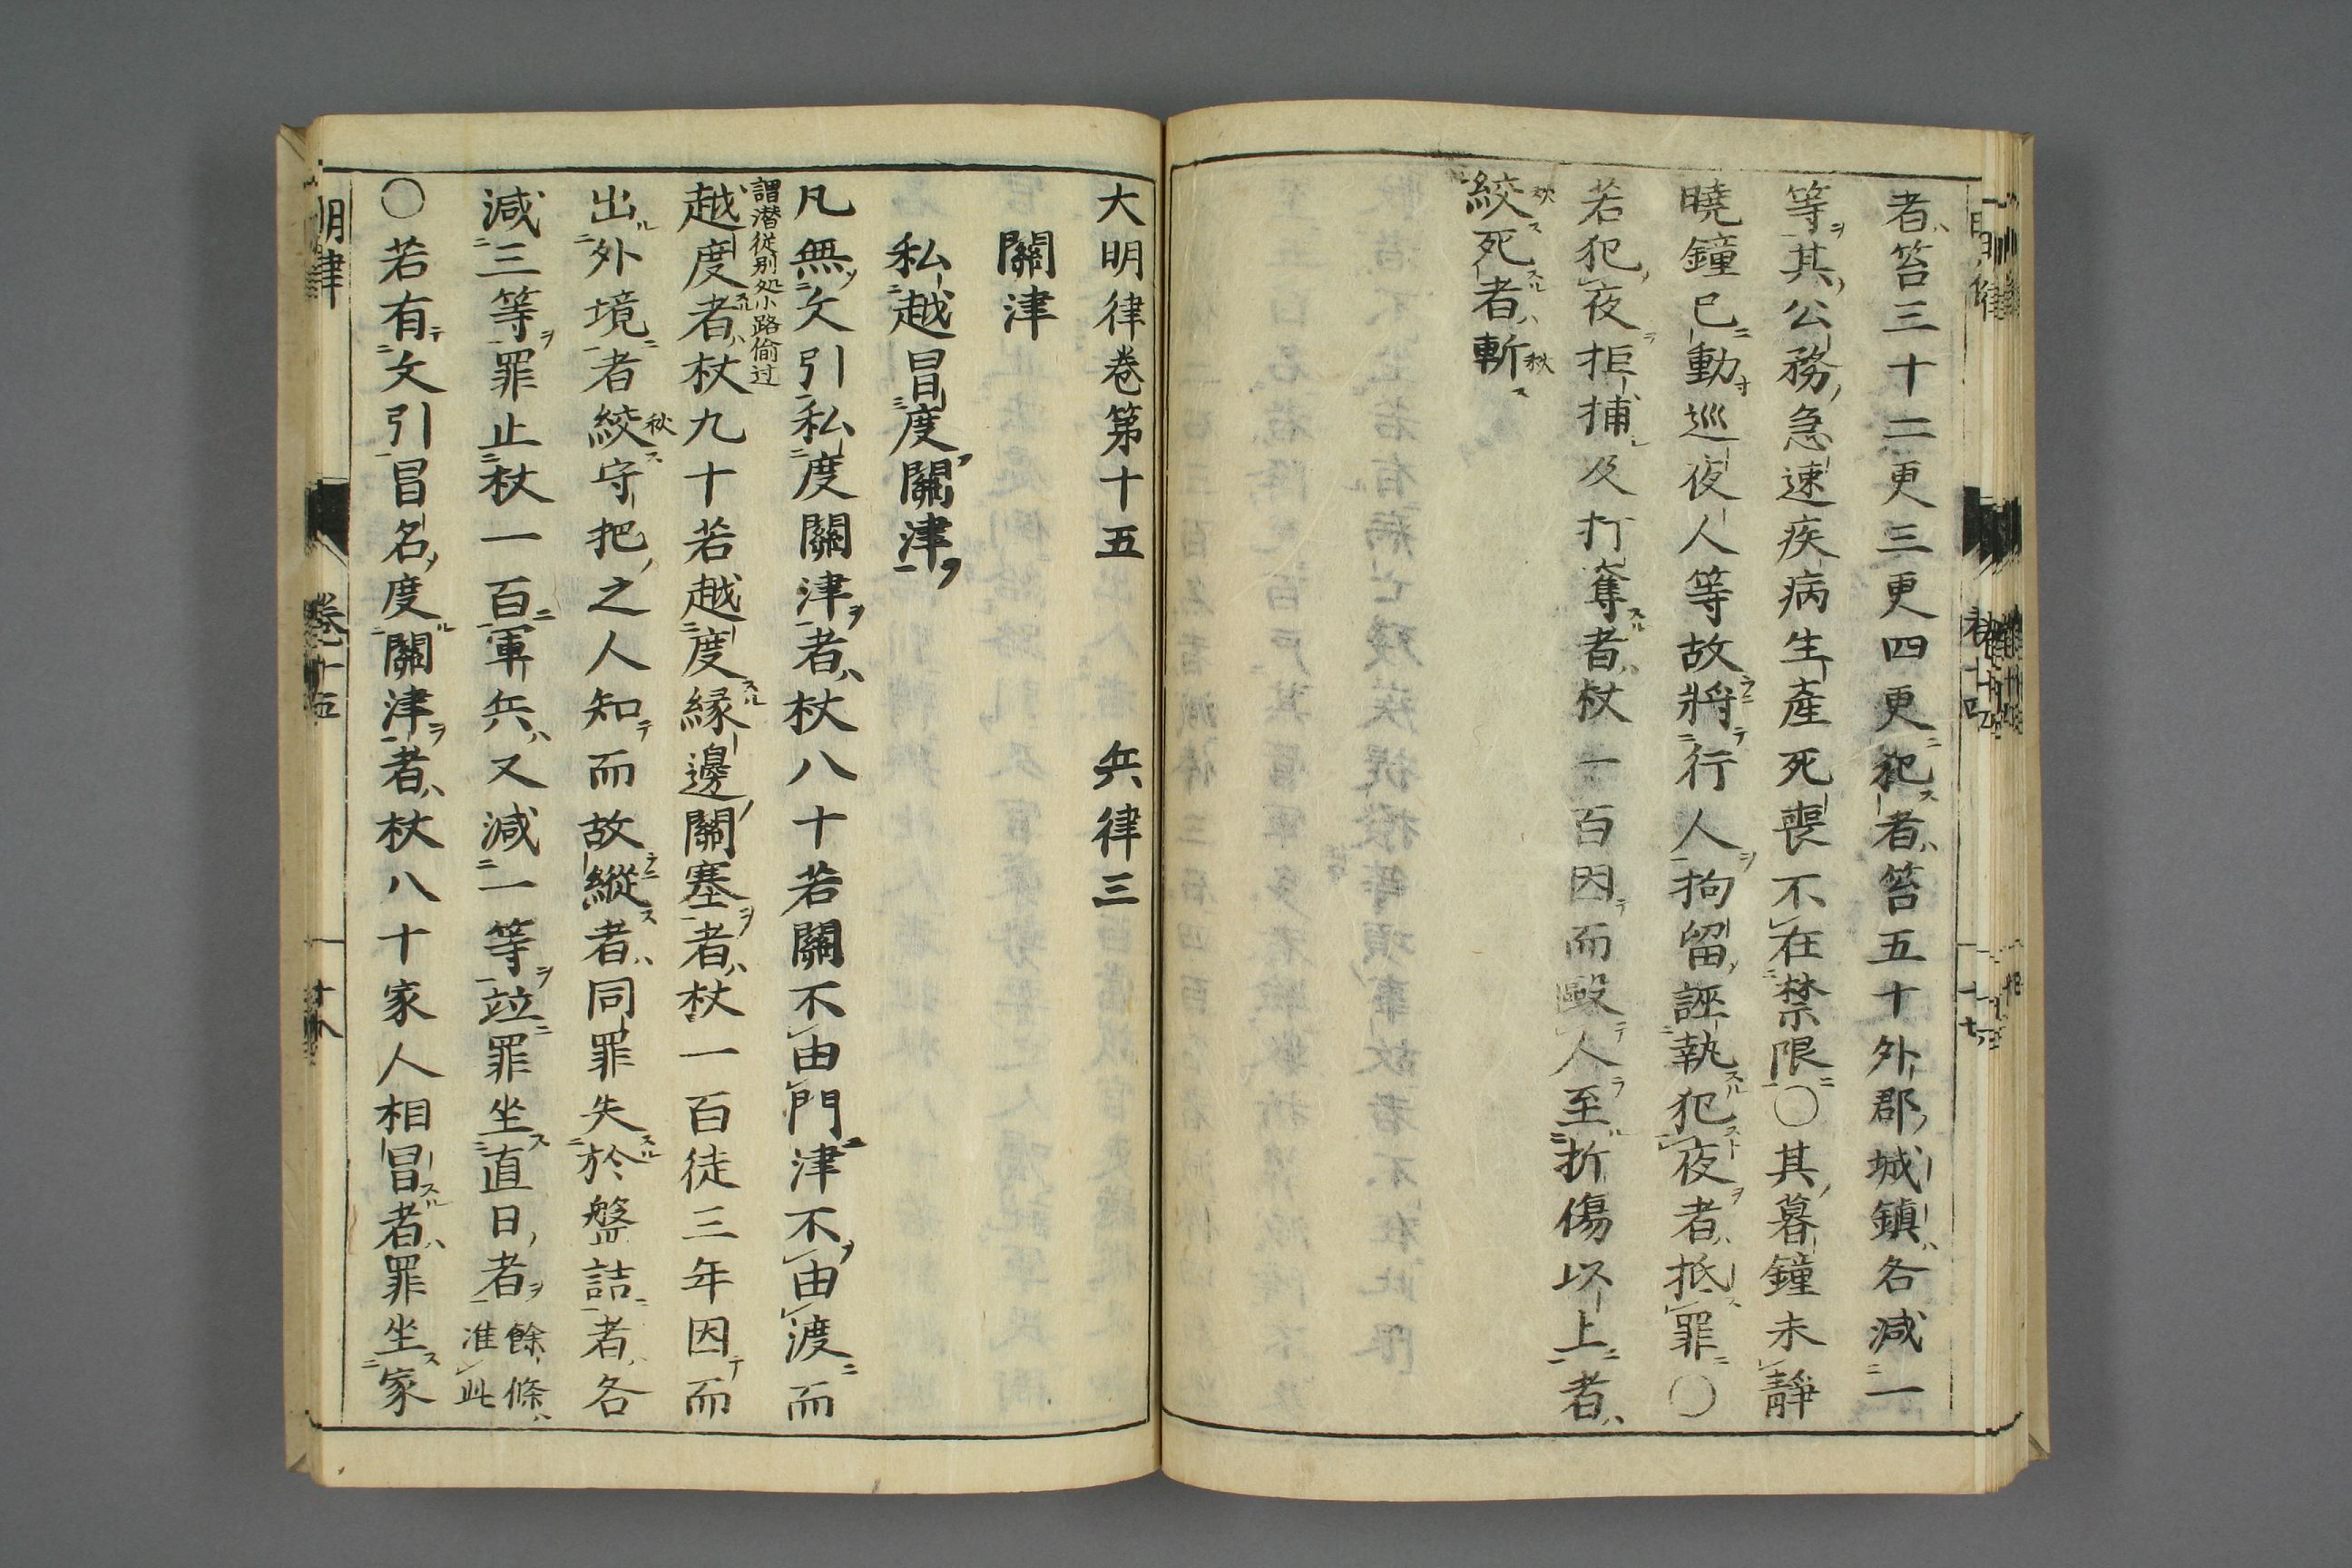 者笞三十二更三更四更犯者笞五十外郡城鎮各減一
等其公務急速疾病生産死喪不在禁限〇其暮鐘未靜
曉鐘已動巡夜人等故將行人拘留誣執犯夜者抵罪〇
若犯夜拒捕及打奪者杖一百因而毆人至折傷以上者
絞秋死者斬秋
大明律巻第十五 兵律三
關津
私越冒度關津
凡無文引私度關津者杖八十若關不由門津不由渡而
謂潜從别処小路偷过
越度者杖九十若越度縁邊關塞者杖一百徒三年因而
出外境者絞秋守把之人知而故縱者同罪失於盤詰者各
減三等罪止杖一百軍兵又減一等竝罪坐直日者餘條准此
〇若有文引冒名度關津者杖八十家人相冒者罪坐家
明律 巻十五 十八